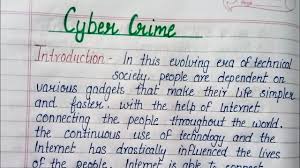 Cyber Crime
Introduction:- In this evolving era of technical
society. people are dependent on
various gadgets that make their life simpler
and faster. with the help of internet
connecting the people throughout the world.
the continuous use of technology and the
Internet has drastically influenced the lives
of the people. Internet is able to connect